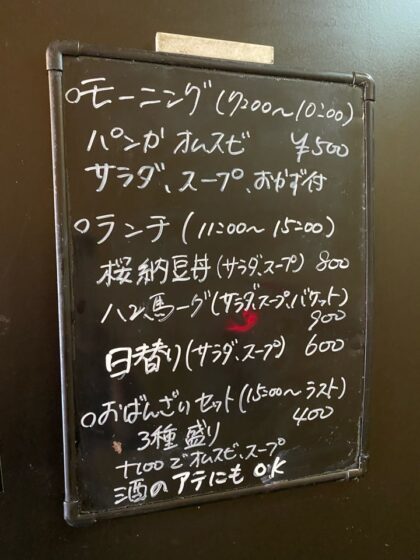 ○モーニング(7:00〜10:00)
パンかオムスビ ¥500
サラダ、スープ、おかず付
○ランチ(11:00〜15:00)
桜納豆丼(サラダ、スープ) 800
ハン馬ーグ(サラダ、スープ、バケット)
900
日替り(サラダ、スープ) 600
○おばんざいセット(15:00〜ラスト)
400
3種盛り
+100でオムスビ、スープ
酒のアテにもOK